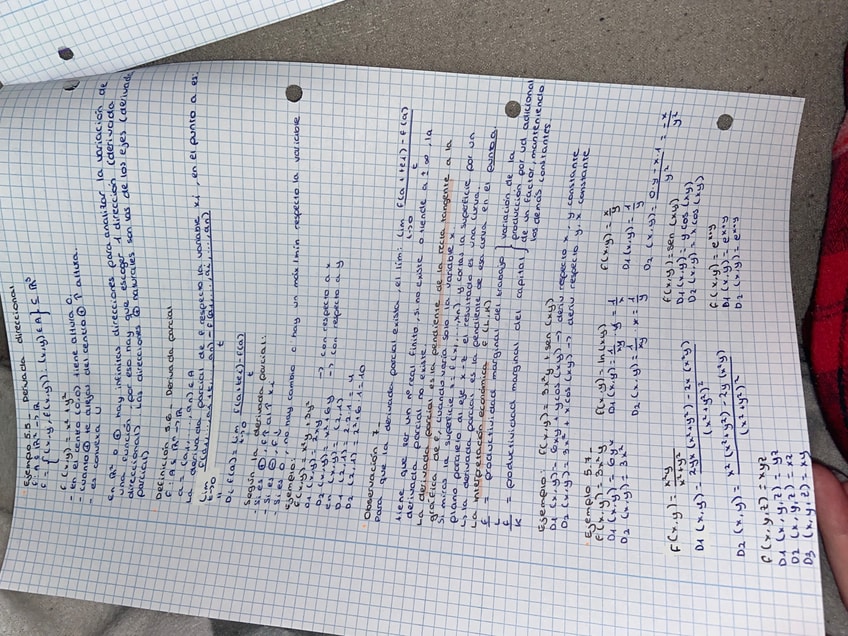 Ejemplo 5.5. Derivada direccional
f: A ⊆ ℝ² → ℝ
{(x,y, f(x,y)): (x,y) ∈ A} ⊆ ℝ³
f(x,y) = x² + y²
- en el centro (0,0) tiene altura 0.
- cuando ⊕ te alejas del centro ⊕ ↑ altura.
- es convexa ∪
en ℝ² o ⊕ hay infinitas direcciones para analizar la variación de
una función, por eso hay que escoger 1 dirección (derivada
direccional). Las direcciones ⊕ naturales son las de los ejes (derivada
parcial)
Definición 5.6. Derivada parcial
f: A ⊆ ℝⁿ → ℝ
a = (a1, ..., an) ∈ A
La derivada parcial de f respecto la variable xi, en el punto a es:
Di f(a) = lim t→0 f(a+tei)-f(a) / t
Según la derivada parcial:
- Si es 0, no hay cambio o hay un máx/mín respecto la variable
Ejemplo:
f(x,y) = x²y + 3y²
D1 (x,y) = 2xy → con respecto a x
D2 (x,y) = x² + 6y → con respecto a y
en (2,1)
D1 (2,1) = 2·2·1 = 4
D2 (2,1) = 2² + 6·1 = 10
Observación 7
Para que la derivada parcial exista, el lím: lim t→0 f(a+tei) - f(a) / t
tiene que ser un nº real finito. Si no existe o tiende a ± ∞, la
derivada parcial no existe.
La derivada parcial es la pendiente de la recta tangente a la
gráfica de f, cuando varía solo la variable x.
Si miras la superficie z = f(x1, ..., xn) y cortas la superficie por un
plano paralelo al eje x-z el resultado es una curva.
↳ la derivada parcial es la pendiente de esa curva en el punto a.
La interpretación económica f(L,K)
f/L = productividad marginal del trabajo } variación de la
f/K = productividad marginal del capital } producción por ud adicional
de un factor, manteniendo
los demás constantes
Ejemplo: f(x,y) = 3x²y + sen(xy)
D1 (x,y) = 6xy + y cos(xy) → deriv respecto x, y constante
D2 (x,y) = 3x² + x cos(xy) → deriv respecto y, x constante
Ejemplo 5.7
f(x,y) = 3x²y
D1 (x,y) = 6yx
D2 (x,y) = 3x²
f(x,y) = ln(xy)
D1 (x,y) = 1/xy · y = 1/x
D2 (x,y) = 1/xy · x = 1/y
f(x,y) = x/y
D1 (x,y) = 1/y
D2 (x,y) = 0·y - x·1 / y² = -x/y²
f(x,y) = x²y / x²+y²
D1 (x,y) = 2yx (x²+y²) - 2x (x²y) / (x²+y²)²
D2 (x,y) = x² (x²+y²) - 2y (x²y) / (x²+y²)²
f(x,y) = sen(xy)
D1 (x,y) = y cos(xy)
D2 (x,y) = x cos(xy)
f(x,y) = e^x+y
D1 (x,y) = e^x+y
D2 (x,y) = e^x+y
f(x,y,z) = xyz
D1 (x,y,z) = yz
D2 (x,y,z) = xz
D3 (x,y,z) = xy